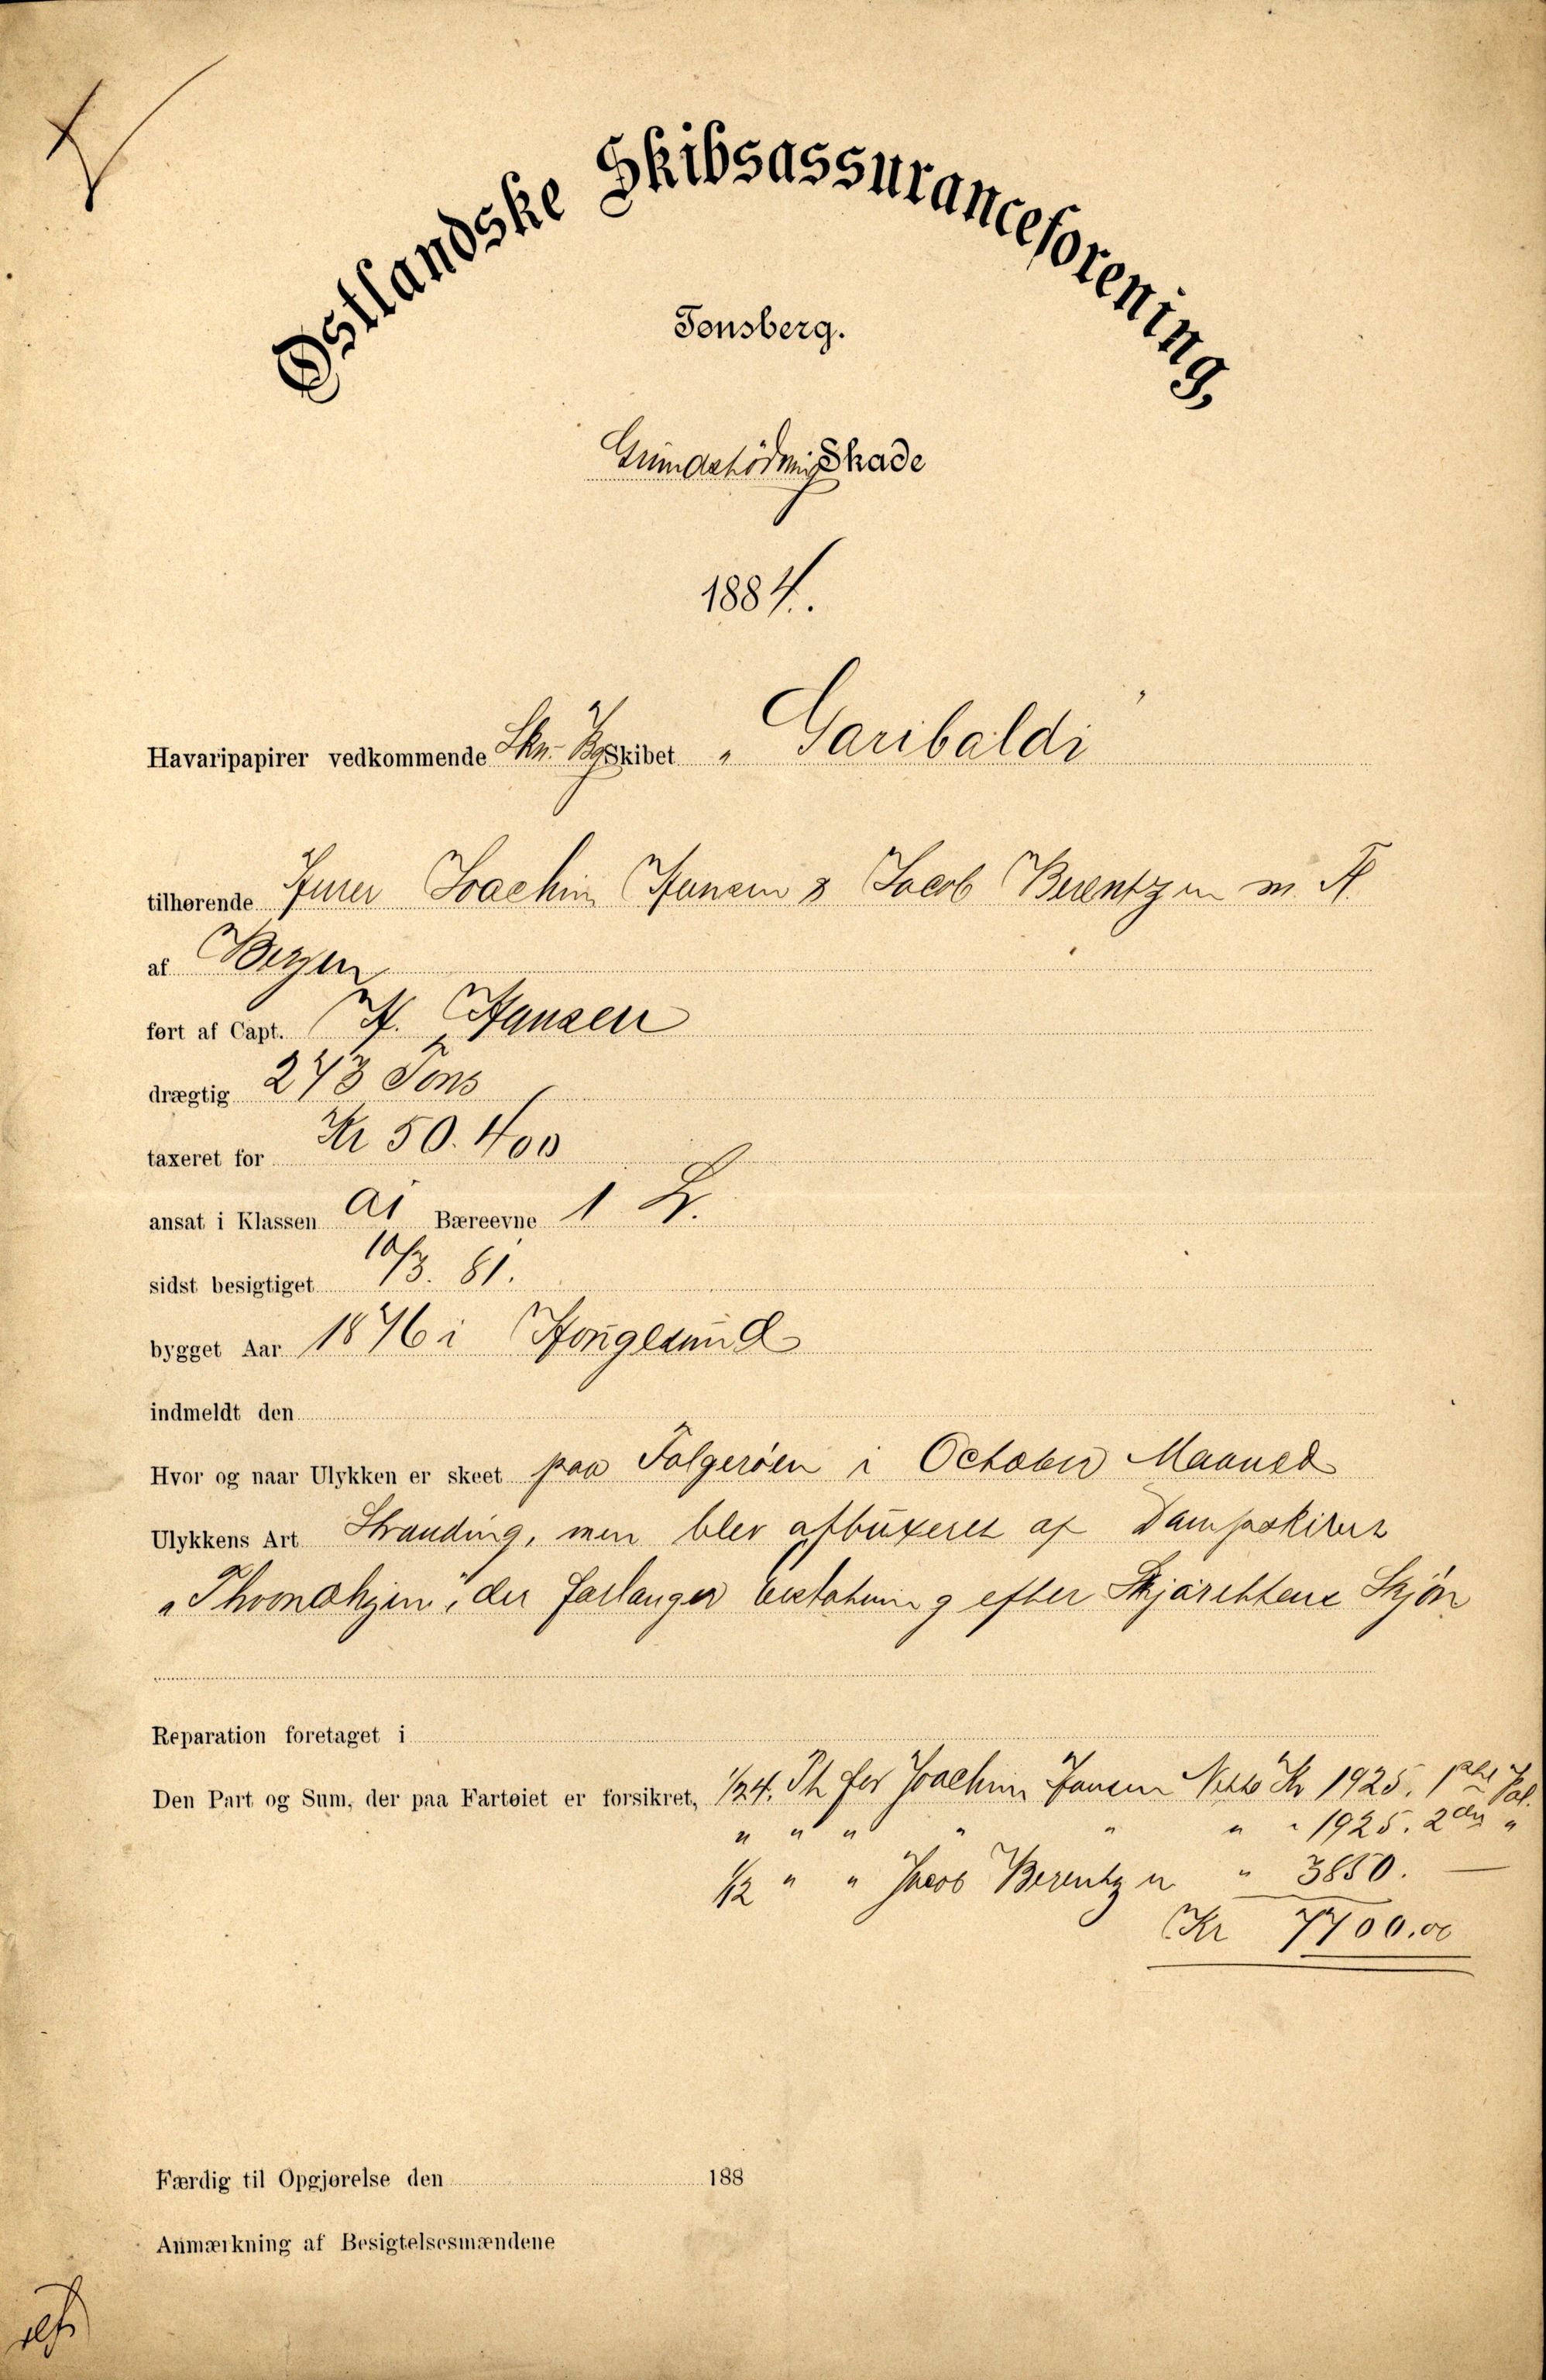 Østlandske Skibsassuranceforening,
Tønsberg.
Grundstødnings Skade
1884.
Havaripapirer vedkommende Skn. Bg Skibet „Garibaldi"
tilhørende Hrrer Joachim Hansen & Jacob Berentzen m. Fl.
af Bergen
ført af Capt. H. Hansen
drægtig 243 Tons
taxeret for Kr 50.400
ansat i Klassen A1 Bæreevne 1 L.
sidst besigtiget 10/3. 81.
bygget Aar 1876 i Hougesund
indmeldt den
Hvor og naar Ulykken er skeet paa Folgerøen i October Maaned
Ulykkens Art Stranding, men blev afbuxeret af Dampskibet
„Throndhjem", der forlanger Erstatning efter Skjørettens Skjøn
Reparation foretaget i
Den Part og Sum, der paa Fartøiet er forsikret, 1/24. Pt for Joachim Jansen Netto Kr 1925. 1ste Pol.
" " " " " " " 1925. 2den "
1/12 " " Jacob Berentzen " 3850. —
Kr 7700.00
Færdig til Opgjørelse den 188
Anmærkning af Besigtelsesmændene